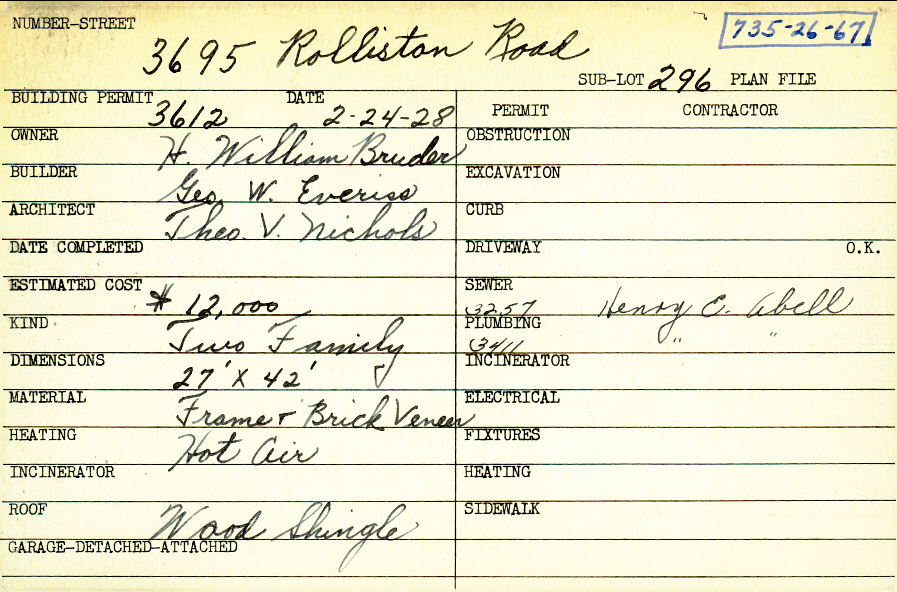 NUMBER-STREET 3695 Rolliston Road 735-26-67
SUB-LOT 296 PLAN FILE
BUILDING PERMIT 3612 DATE 2-24-28
PERMIT CONTRACTOR
OWNER H. William Bruder
OBSTRUCTION
BUILDER Geo. W. Everiss
EXCAVATION
ARCHITECT Theo. V. Nichols
CURB
DATE COMPLETED
DRIVEWAY O.K.
ESTIMATED COST $ 12,000
SEWER 3257 Henry E. Abell
KIND Two Family
PLUMBING 3411 " "
DIMENSIONS 27' X 42'
INCINERATOR
MATERIAL Frame + Brick Veneer
ELECTRICAL
HEATING Hot Air
FIXTURES
INCINERATOR
HEATING
ROOF Wood Shingle
SIDEWALK
GARAGE-DETACHED-ATTACHED